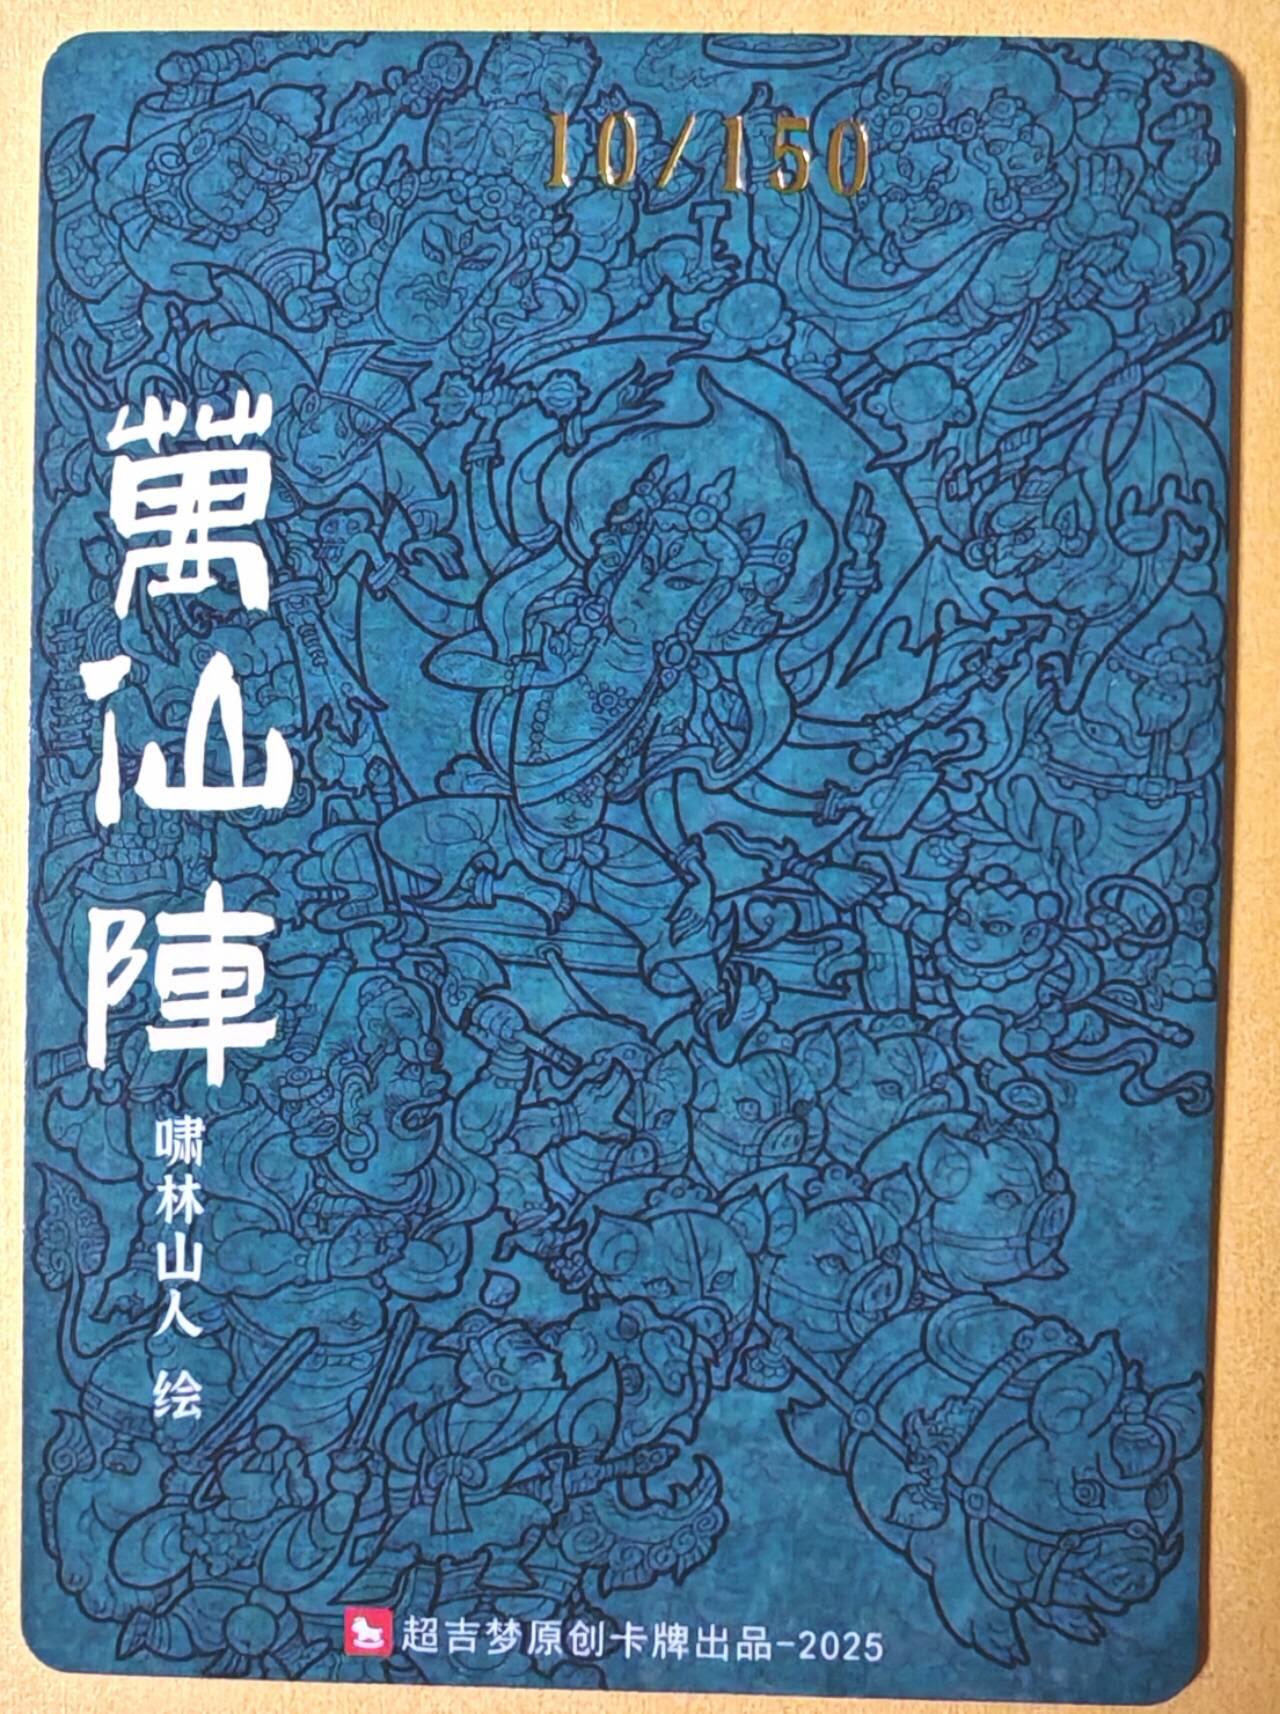 10/150
萬仙陣
啸林山人 绘
超吉梦原创卡牌出品-2025